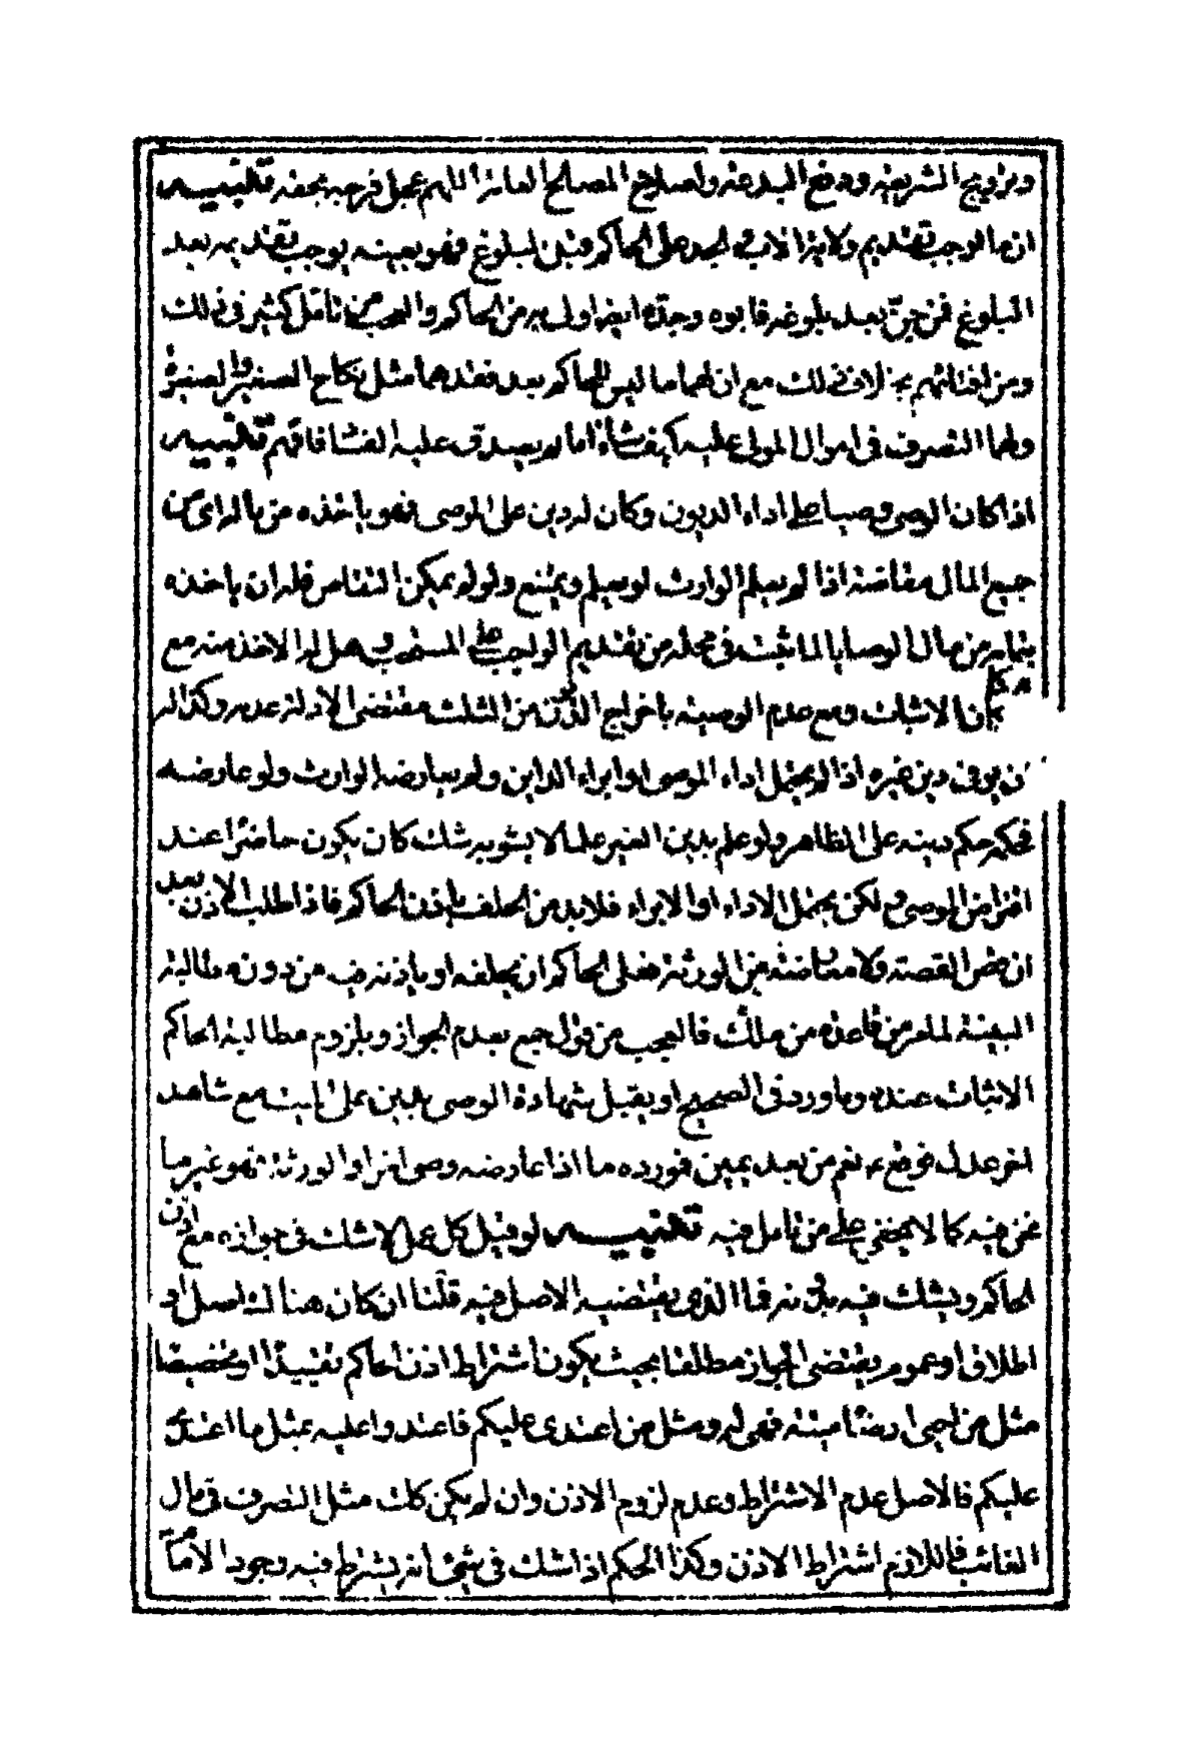 وترويج الشريعة ودفع المبدعة واصلاح المصالح العامة اللهم عجل فرجه بحقه تنبيه
ان ما اوجب تقديم ولاية الاب والجد على الحاكم قبل البلوغ فهو بعينه يوجب تقديمه بعد
البلوغ فمن جنّ بعد بلوغه فابوه وجدّه اولى به من الحاكم والعجب من تأمل كثير في ذلك
ومن افتائهم بخلاف ذلك مع ان لهما ما ليس للحاكم بعد فقدهما مثل نكاح الصغير والصغيرة
ولهما التصرف في اموال المولى عليه كيف شاءا ما لم يصدق عليه الفساد فافهم تنبيه
اذا كان الوصي وصيا على اداء الديون وكان له دين على الموصي فهو يأخذه من باب اداء
جميع المال مقاصة اذا لم يعلم الوارث او يعلم ويمتنع ولو لم يمكن التقاص فله ان يأخذه
من مال الوصايا لما ثبت في محله من تقديم الواجب على المستحب وهل له الاخذ منه مع
امكان الاثبات ومع عدم الوصية باخراج الدين من الثلث مقتضى الادلة عدمه وكذا له
ان يوفي دين غيره اذا لم يحتمل اداء الموصي او ابراء الداين ولم يعارضه الوارث ولو عارضه
فحكمه حكم دينه على الظاهر ولو علم بدين الغير علما لا يشوبه شك كان يكون حاضرا عند
اقتراض الموصي ولكن يحتمل الاداء او الابراء فلابد من الحلف باذن الحاكم فاذا طلب الاذن بعد
ان حضر القصة ولا معارضة من الورثة فعلى الحاكم ان يحلفه او يأذن فيه من دون مطالبة
البينة لما مر من قاعدة من ملك فالعجب من قول جمع بعدم الجواز وبلزوم مطالبة الحاكم
الاثبات عنده وما ورد في الصحيح او يقبل شهادة الوصي بدين على الميت مع شاهد
اخر عدل فوقع ع نعم من بعد يمين فورده ما اذا عارضه وصي اخر او الورثة فهو غير ما
نحن فيه كما لا يخفى على من تأمل فيه تنبيه لو قيل كل عمل لا شك في جوازه مع اذن
الحاكم ويشك فيه بدونه فما الذي يقتضيه الاصل فيه قلنا ان كان هناك اصل او
اطلاق او عموم يقتضي الجواز مطلقا بحيث يكون اشتراط اذن الحاكم تقييدا او تخصيصا
مثل من احيى ارضا ميتة فهي له ومثل من اعتدى عليكم فاعتدوا عليه بمثل ما اعتدى
عليكم فالاصل عدم الاشتراط وعدم لزوم الاذن وان لم يكن كك مثل التصرف في مال
الغائب فاللازم اشتراط الاذن وكذا الحكم اذا شك في شئ انه يشترط فيه وجود الامام